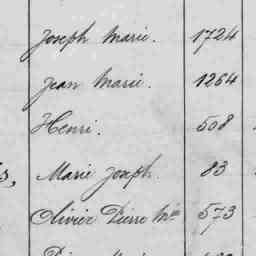 Joseph Marie. 1724
Jean Marie. 1264
Henri. 508
Marie Joseph. 83
Olivier Pierre Mie 573